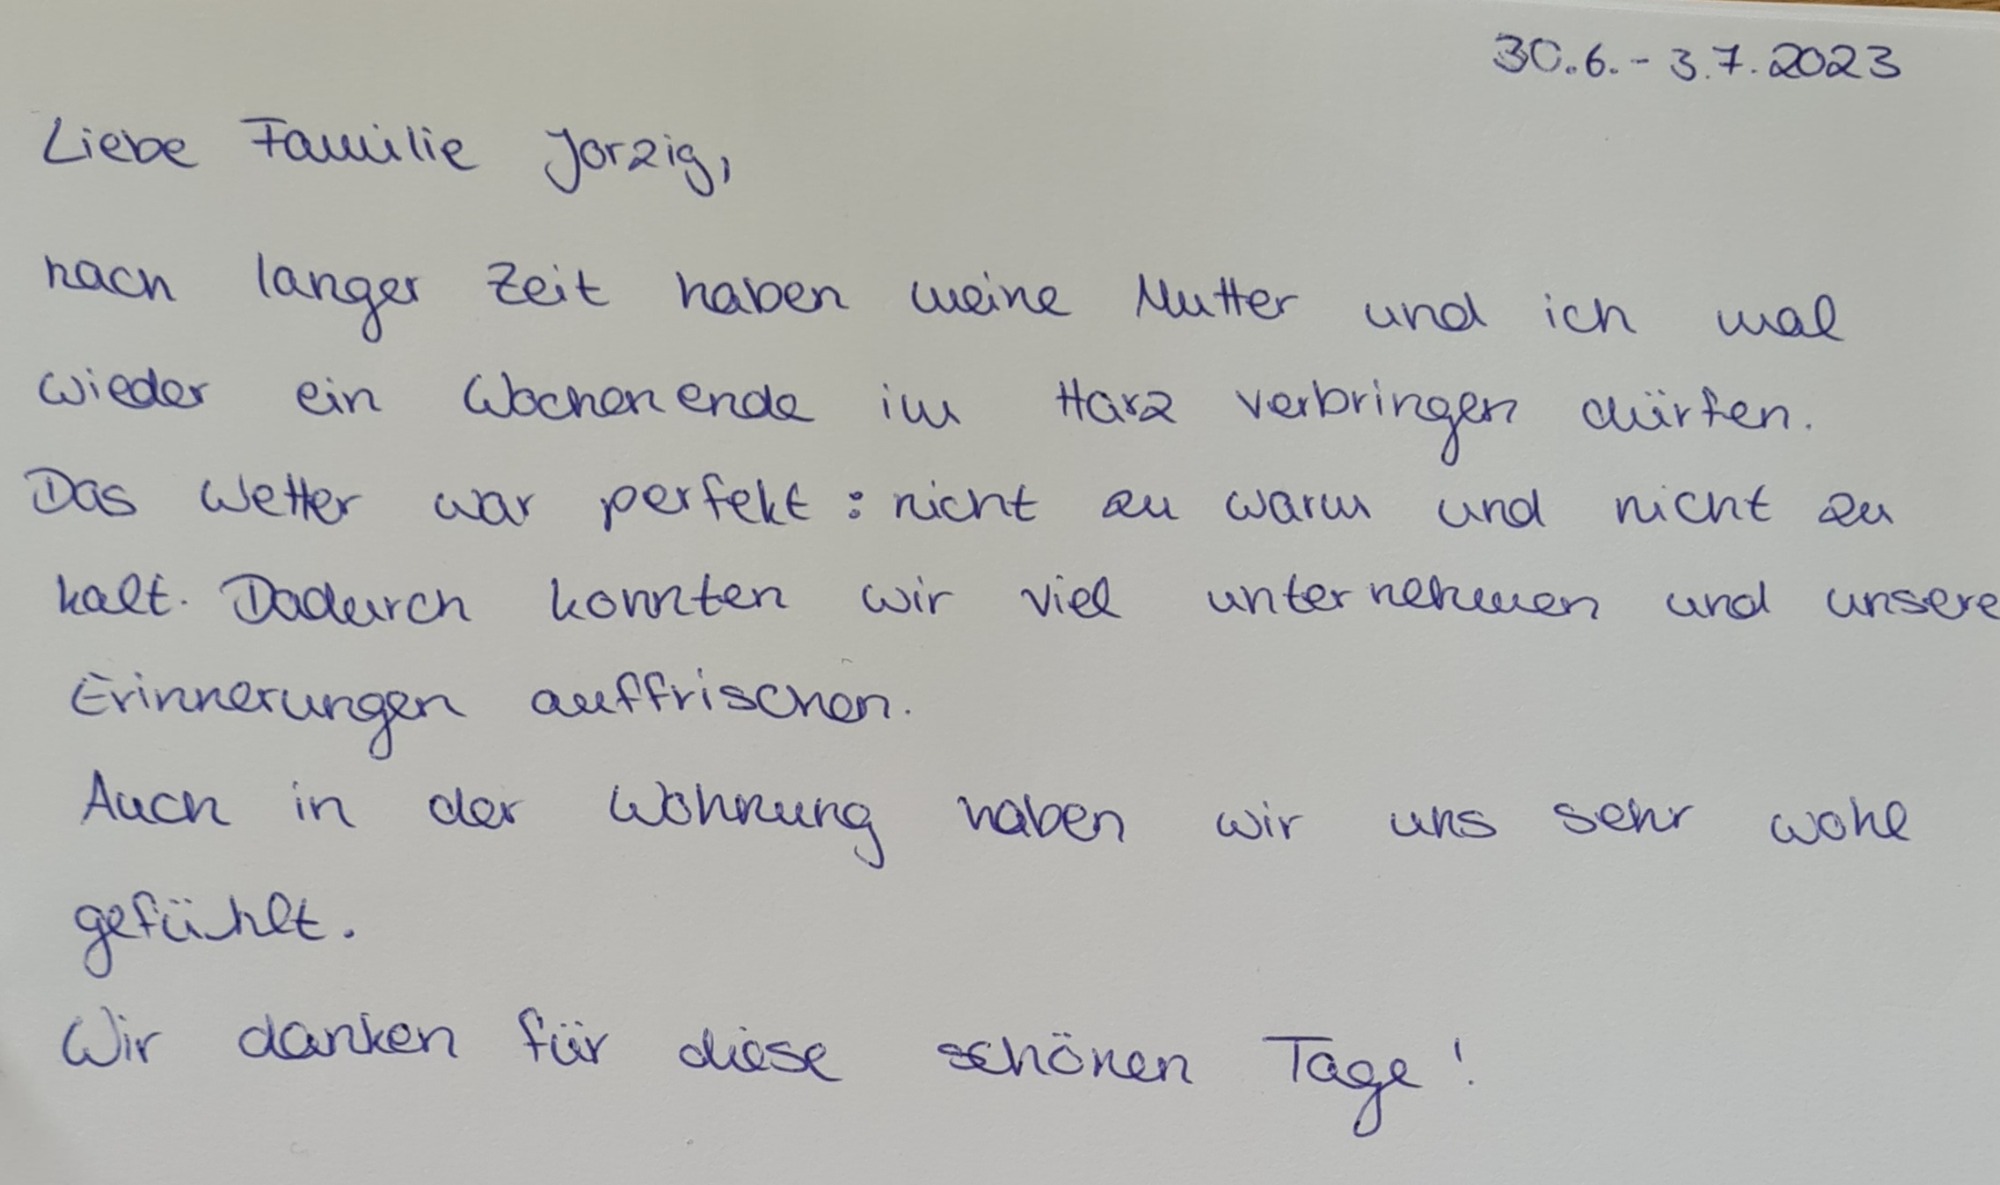 30.6.- 3.7.2023
Liebe Familie Jorzig,
nach langer Zeit haben meine Mutter und ich mal
wieder ein Wochenende im Harz verbringen dürfen.
Das Wetter war perfekt: nicht zu warm und nicht zu
kalt. Dadurch konnten wir viel unternehmen und unsere
Erinnerungen auffrischen.
Auch in der Wohnung haben wir uns sehr wohl
gefühlt.
Wir danken für diese schönen Tage!